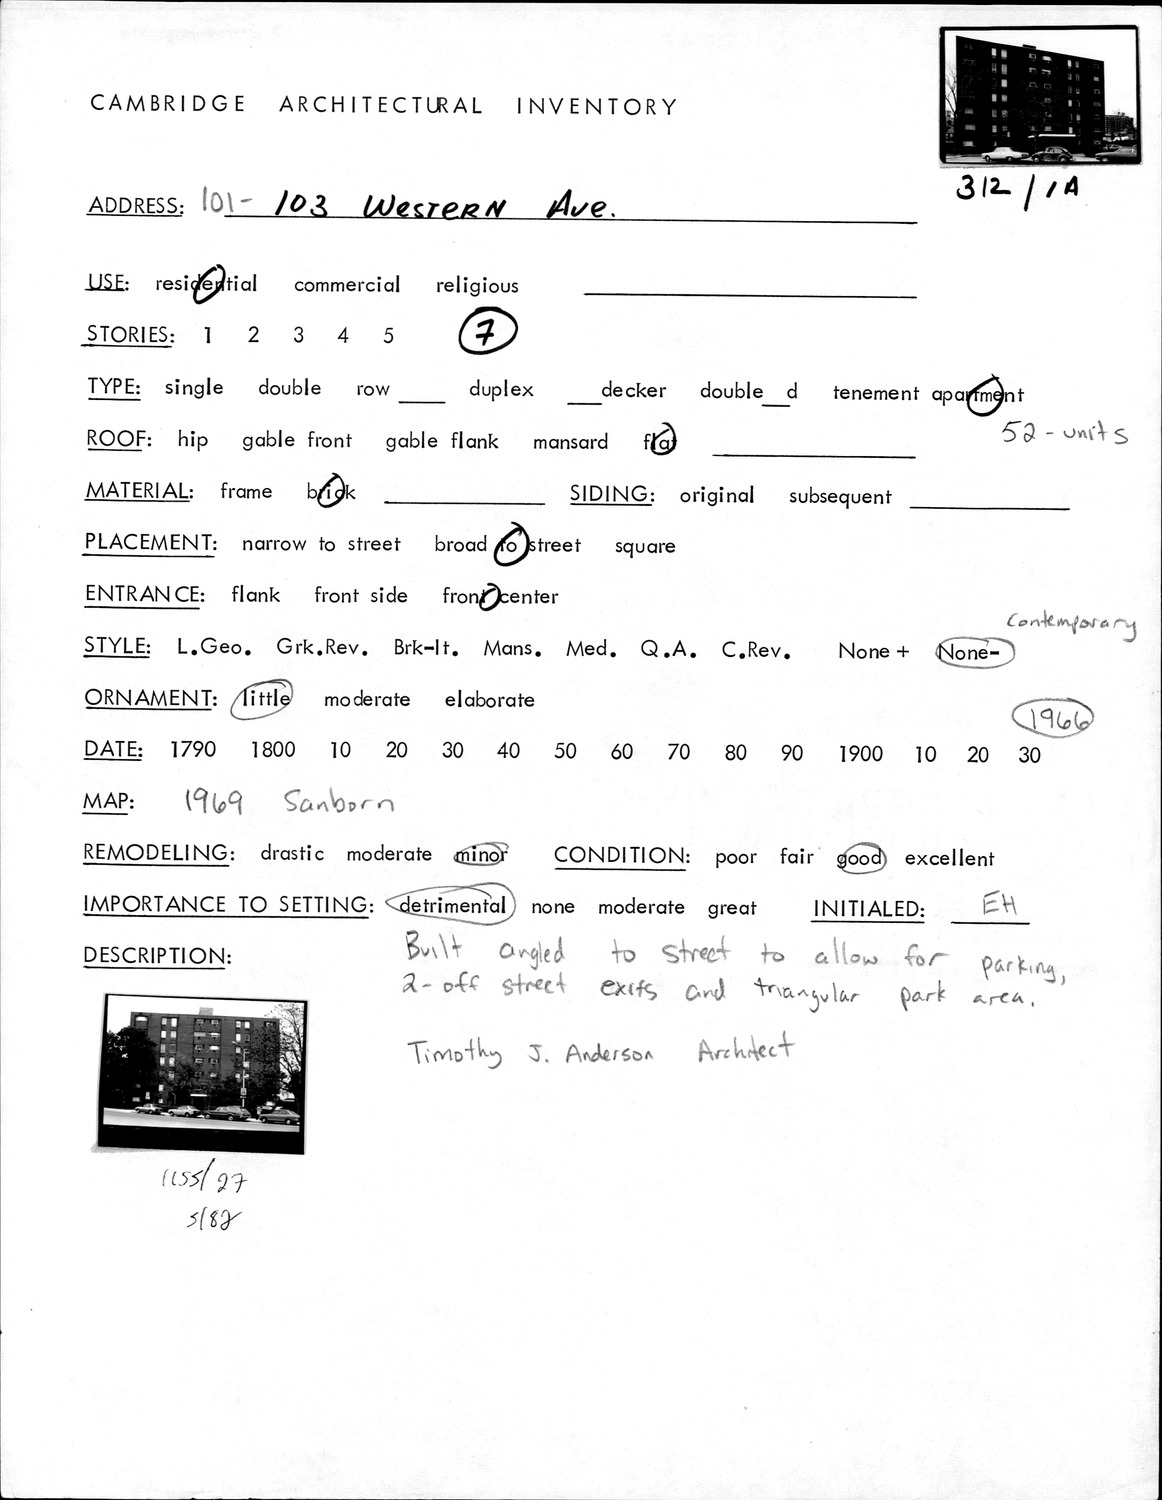 CAMBRIDGE ARCHITECTURAL INVENTORY
312/1A
ADDRESS: 101- 103 WESTERN Ave.
USE: residential commercial religious
STORIES: 1 2 3 4 5 7
TYPE: single double row ___ duplex ___decker double__d tenement apartment
52-units
ROOF: hip gable front gable flank mansard flat
MATERIAL: frame brick SIDING: original subsequent
PLACEMENT: narrow to street broad to street square
ENTRANCE: flank front side front center
Contemporary
STYLE: L.Geo. Grk.Rev. Brk-It. Mans. Med. Q.A. C.Rev. None + None-
ORNAMENT: little moderate elaborate
1966
DATE: 1790 1800 10 20 30 40 50 60 70 80 90 1900 10 20 30
MAP: 1969 Sanborn
REMODELING: drastic moderate minor CONDITION: poor fair good excellent
IMPORTANCE TO SETTING: detrimental none moderate great INITIALED: EH
DESCRIPTION: Built angled to street to allow for parking,
2-off street exits and triangular park area.
Timothy J. Anderson Architect
1155/27
5/82